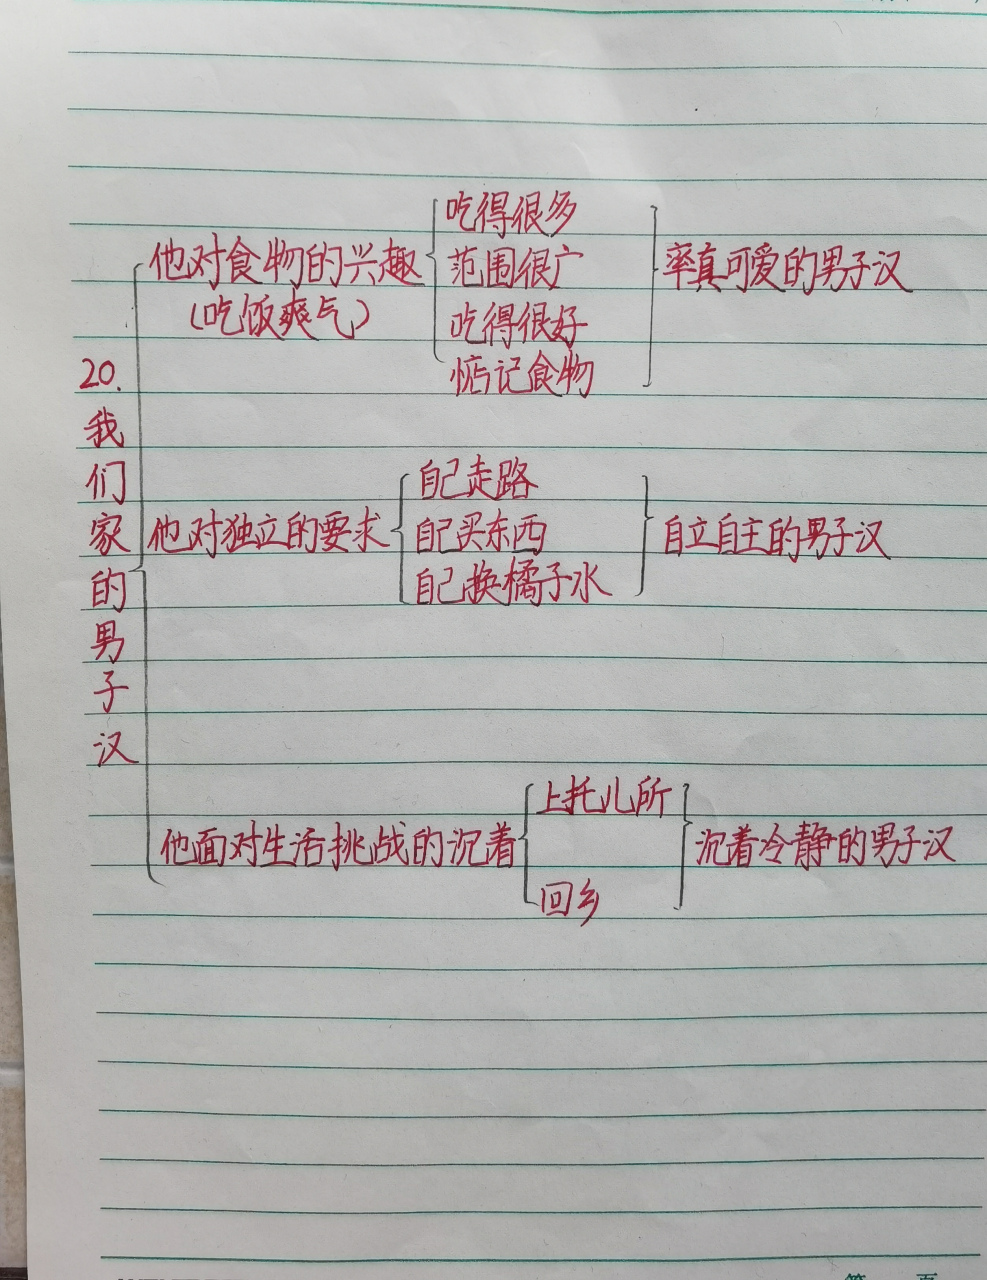 20.我们家的男子汉
他对食物的兴趣
(吃饭爽气)
吃得很多
范围很广
吃得很好
惦记食物
率真可爱的男子汉
他对独立的要求
自己走路
自己买东西
自己换橘子水
自立自主的男子汉
他面对生活挑战的沉着
上托儿所
回乡
沉着冷静的男子汉
第 页